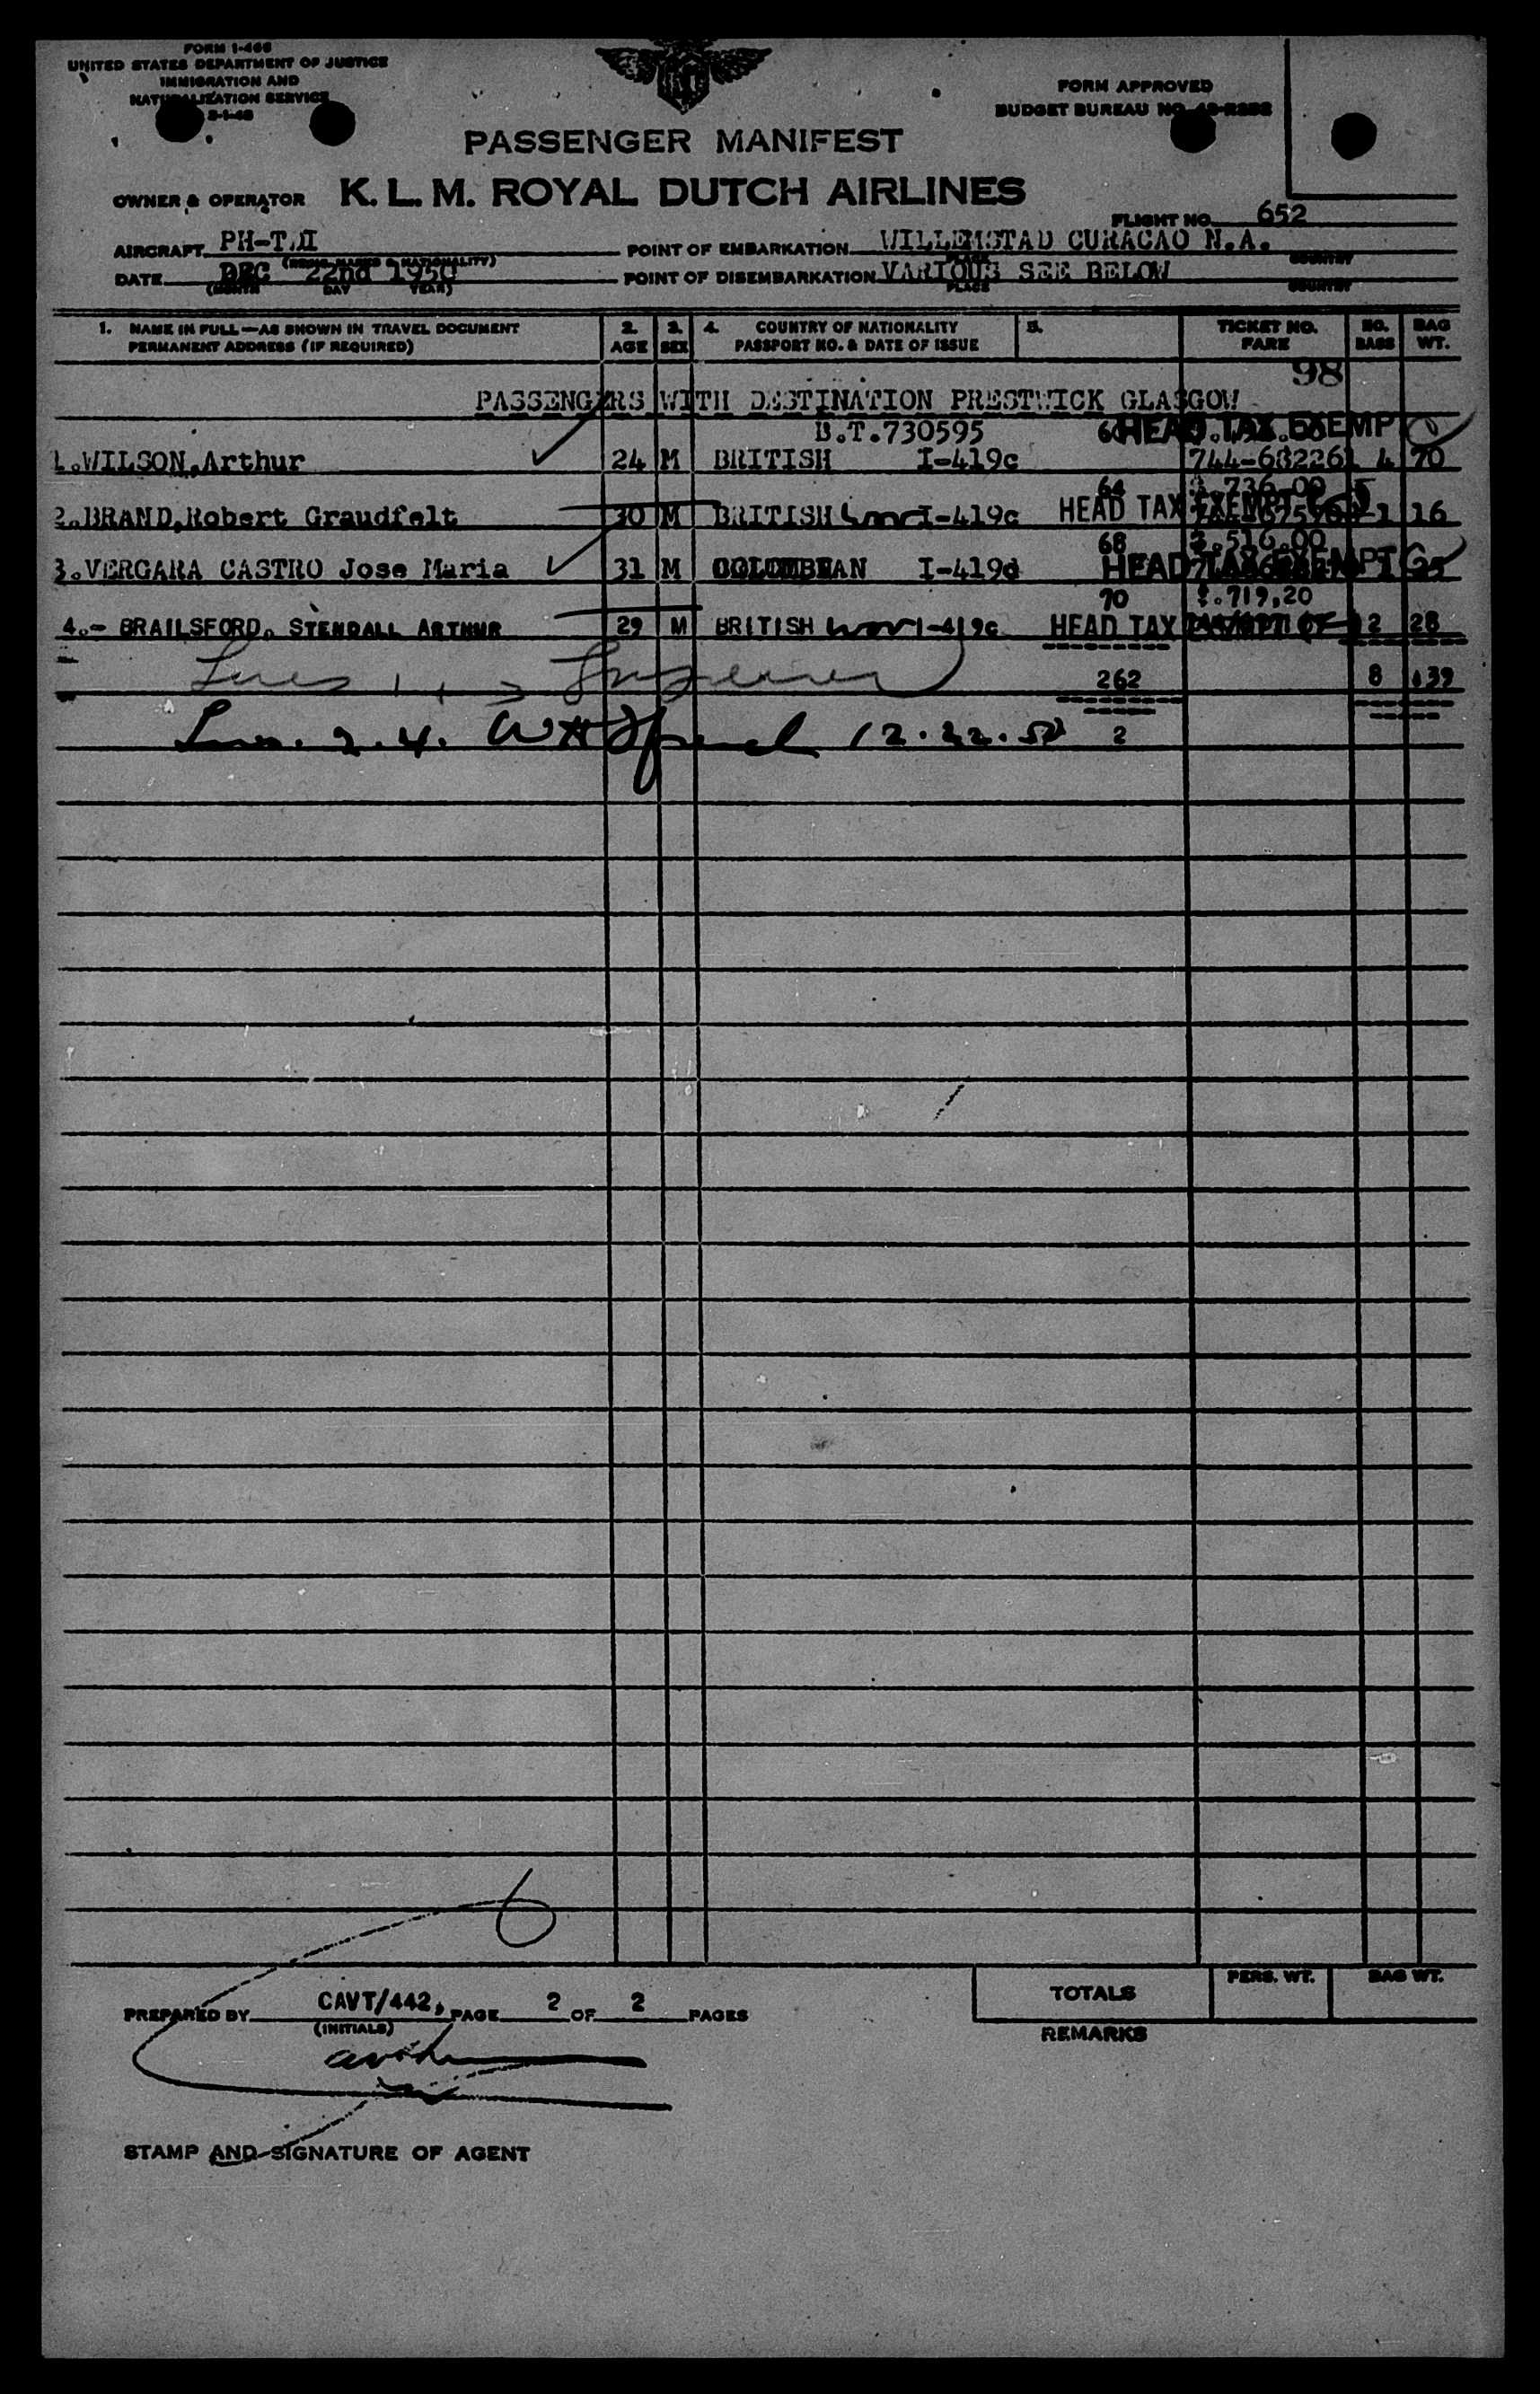 FORM I-466
UNITED STATES DEPARTMENT OF JUSTICE
IMMIGRATION AND
NATURALIZATION SERVICE
FORM APPROVED
BUDGET BUREAU NO.
PASSENGER MANIFEST
OWNER & OPERATOR K. L. M. ROYAL DUTCH AIRLINES
FLIGHT NO. 652
AIRCRAFT POINT OF EMBARKATION WILLEMSTAD CURACAO N.A.
DATE DEC 22nd 1950 POINT OF DISEMBARKATION VARIOUS SEE BELOW
(MONTH DAY YEAR) PLACE COUNTRY
1. NAME IN FULL—AS SHOWN IN TRAVEL DOCUMENT 2. 3. 4. COUNTRY OF NATIONALITY 5. TICKET NO. NO. BAG
PERMANENT ADDRESS (IF REQUIRED) AGE SEX PASSPORT NO. & DATE OF ISSUE FARE BAGS WT.
98
PASSENGERS WITH DESTINATION PRESTWICK GLASGOW
B.T.730595 HEAD TAX EXEMPT
1.WILSON,Arthur 24 M BRITISH I-419c 744-682261 4 70
64 736,00
2.BRAND,Robert Graudfelt 30 M BRITISH I-419c HEAD TAX EXEMPT 1 16
68 516,00
3.VERGARA CASTRO Jose Maria 31 M I-419d HEAD TAX EXEMPT 1 25
70 719,20
4.- BRAILSFORD, STENDALL ARTHUR 29 M BRITISH I-419c HEAD TAX 2 28
262 8 139
2. 4. 12.22.50 2
PREPARED BY CAVT/442, PAGE 2 OF 2 PAGES
(INITIALS)
TOTALS PERS. WT. BAG WT.
REMARKS
STAMP AND SIGNATURE OF AGENT